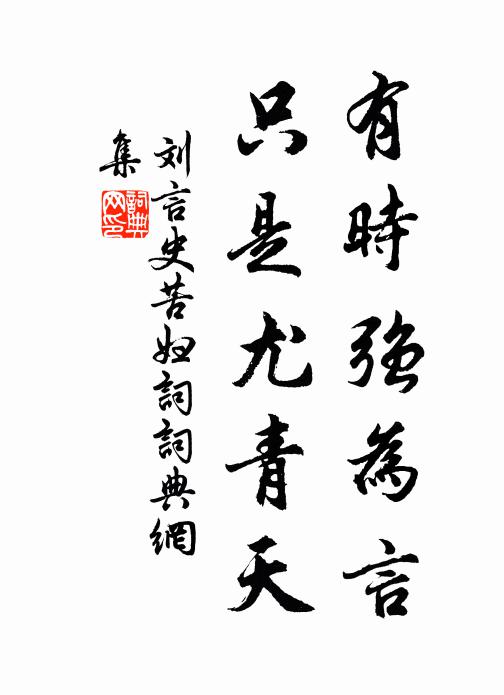 有時強為言
只是尤青天
刘言史苦妇詞詞典網
集
詞典网印